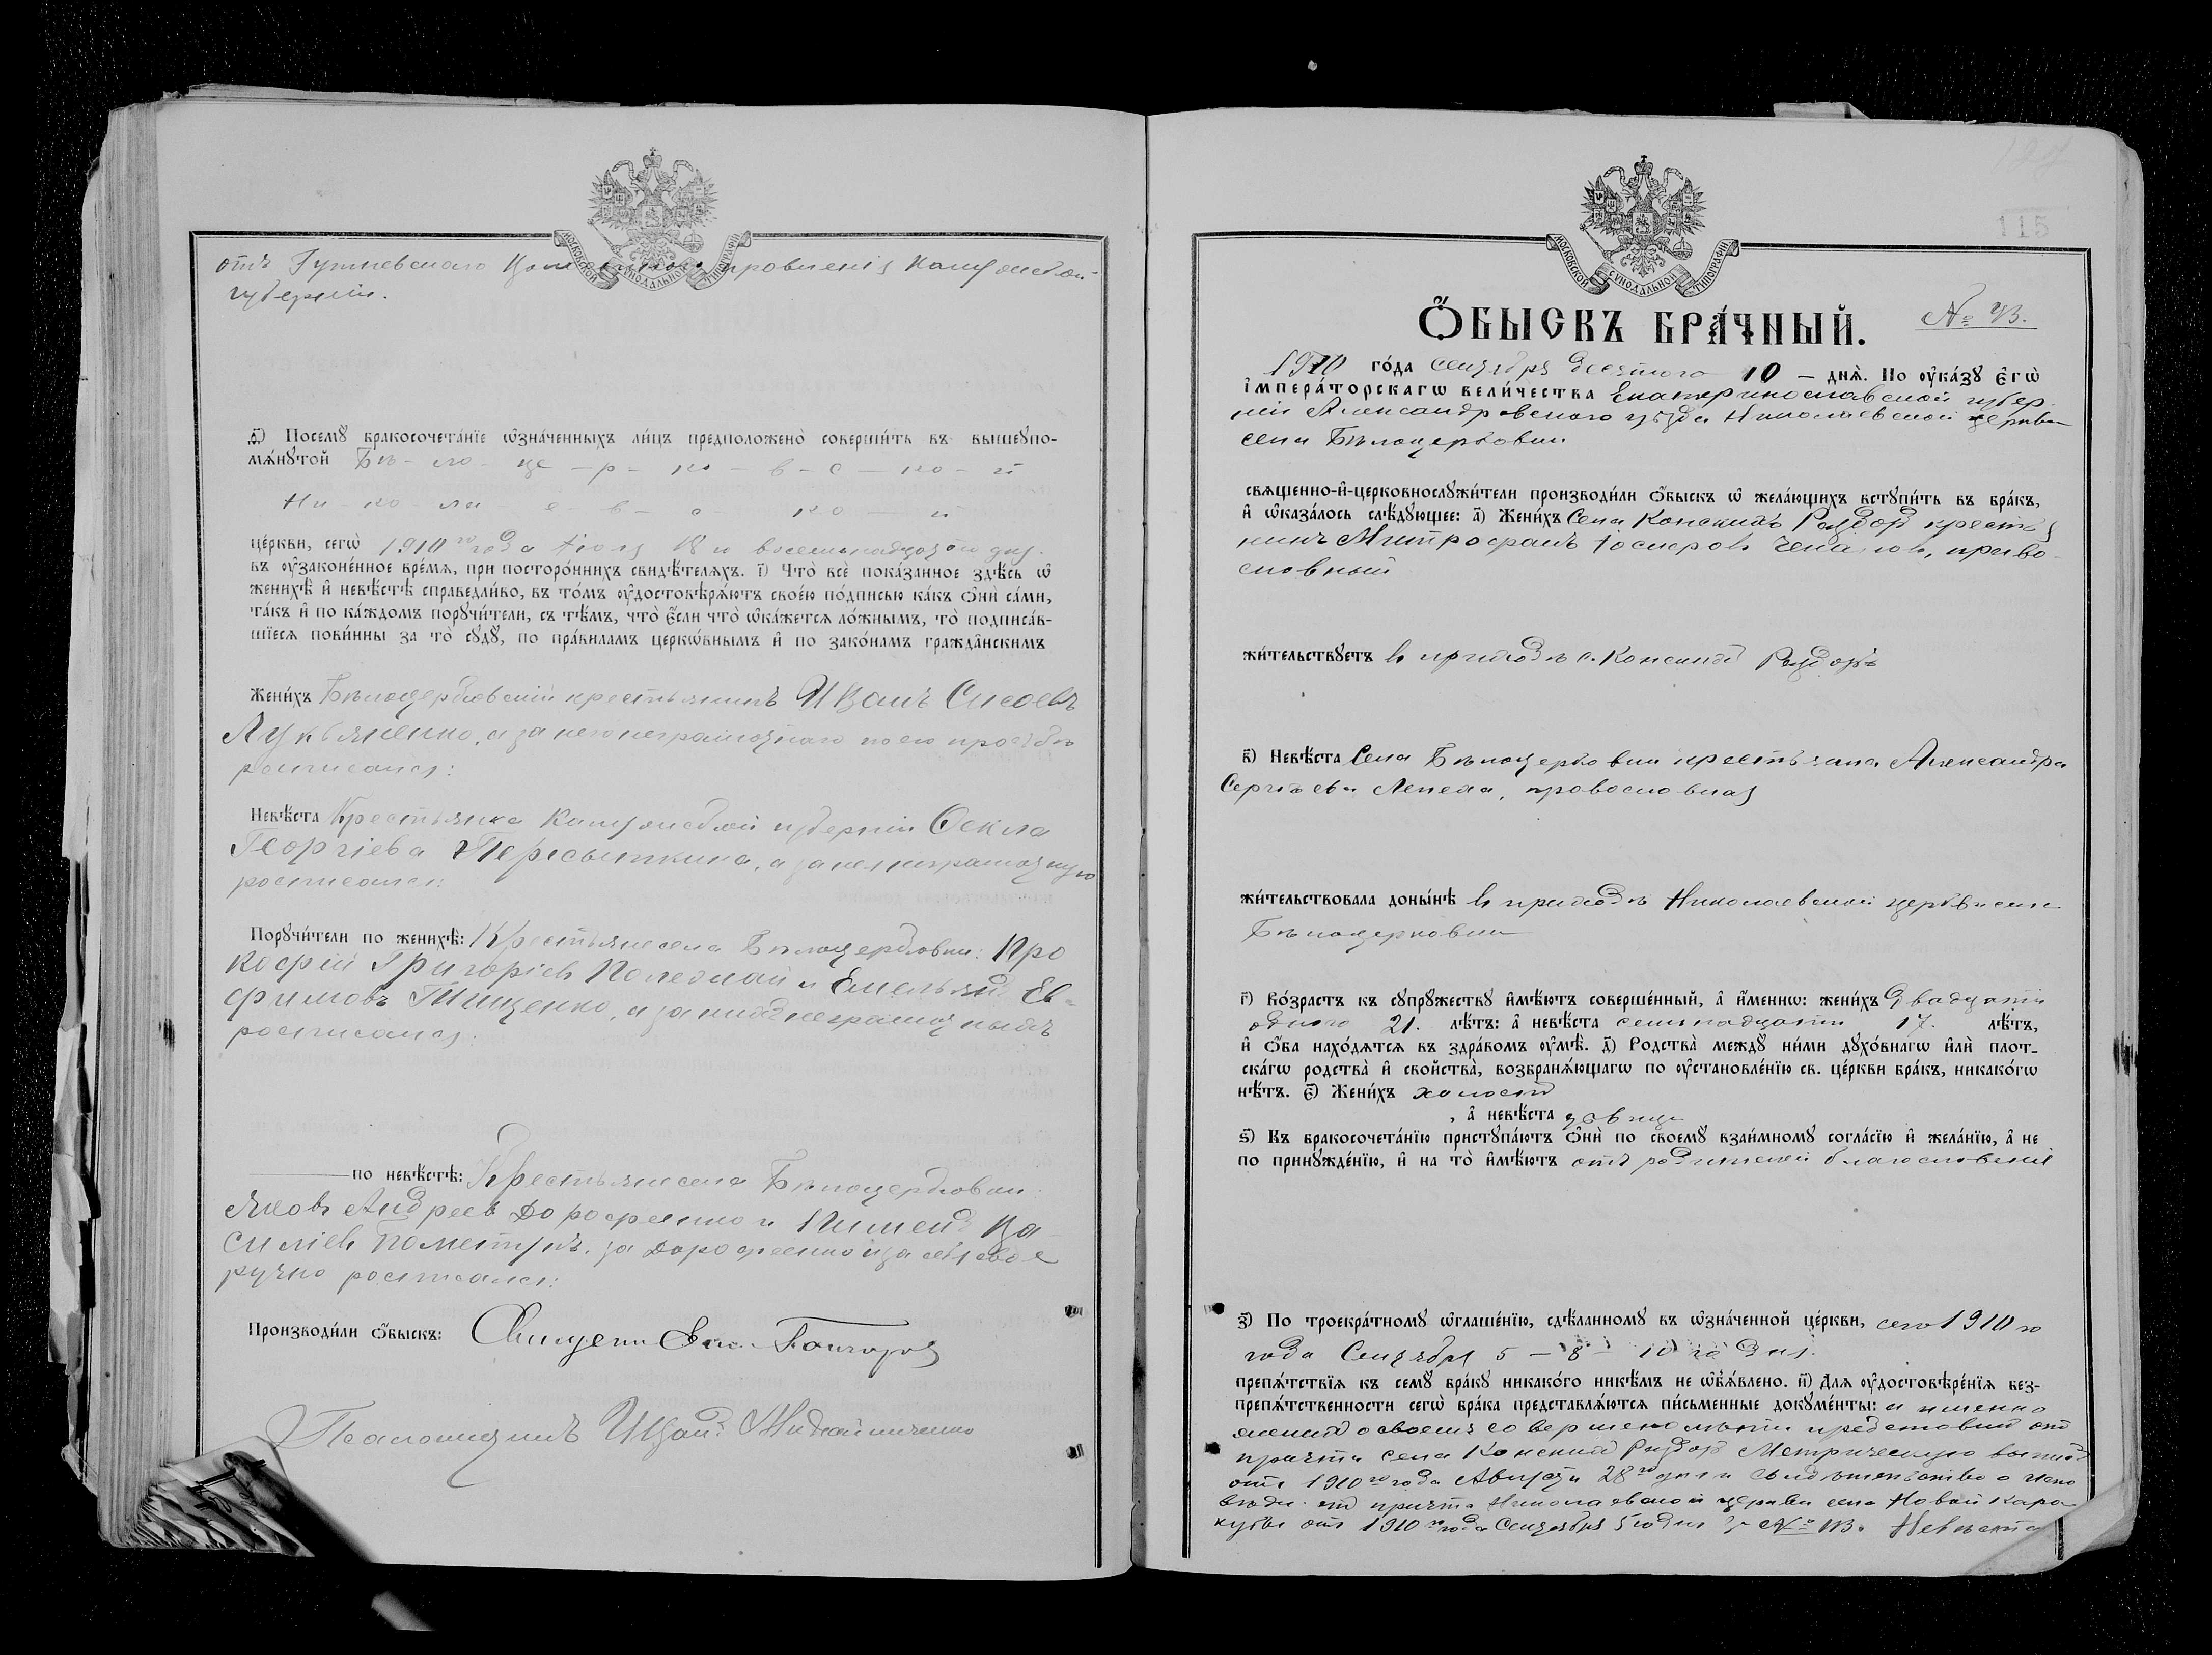 МОСКОВСКОЙ СѴНОДАЛЬНОЙ ТИПОГРАФІИ
отъ Гутневскаго правленія Калужской
губерніи.
д҃) Посемꙋ бракосочета́нїе ѡ҆зна́ченныхъ ли́цъ предположено̀ соверши́ть въ вышеꙋпо-
мѧ́нꙋтой Бѣ - ло - це - р - ко - в - с - ко - й
Ни - ко - ла - е - в - с - ко - й
це́ркви, сегѡ̀ 1910 го года Іюля 18 го восемнадцатого дня.
въ ꙋ҆законе́нное вре́мѧ, при посторо́ннихъ свидѣ́телѧхъ. і҃) Что̀ всѐ пока́занное здѣ́сь ѡ҆
женихѣ̀ и҆ невѣ́стѣ справедли́во, въ то́мъ ꙋ҆достовѣрѧ́ютъ свое́ю по́дписью ка́къ ѻ҆нѝ са́ми,
та́къ и҆ по ка́ждомъ порꙋчи́тели, съ тѣ́мъ, что̀ є҆́сли что̀ ѡ҆ка́жетсѧ ло́жнымъ, то̀ подписа́в-
шїесѧ пови́нны за то̀ сꙋдꙋ̀, по пра́виламъ церкѡ́внымъ и҆ по зако́намъ гражда̂нскимъ
Жени́хъ Бѣлоцерковскій крестьянинъ Иванъ Сисоевъ
Лукьяненко, а за него неграмотнаго по его прозьбѣ
росписался:
Невѣ́ста Крестьянка Калужской губерніи Ѳекла
Георгіева Пересыпкина, а за нея неграмотную
росписался:
Порꙋчи́тели по женихѣ̀: Крестьяне села Бѣлоцерковки: Про
кофій Григоріевъ и Емельянъ Ев-
фимовъ Тищенко, а за нихъ неграмотныхъ
росписался:
по невѣ́стѣ: Крестьяне села Бѣлоцерковки:
Яковъ Андреевъ Дорофеенко и Пименъ Ва
силіевъ за Дорофеенко и за себя свое
ручно росписался:
Производи́ли ѻ҆́быскъ: Священ. Гончаровъ
Псаломщикъ Иванъ Михайличенко
115
МОСКОВСКОЙ СѴНОДАЛЬНОЙ ТИПОГРАФІИ
Ѻ҆́БЫСКЪ БРА́ЧНЫЙ. № 43.
1910 го́да сентября десятого 10 — днѧ̀. По ꙋ҆ка́зꙋ є҆гѡ̀
і҆мпера́торскагѡ вели́чества Екатеринославской губер-
ніи Александровского уѣзда Николаевской церкви
села Бѣлоцерковки
свѧщенно-и҆-церковнослꙋжи́тели производи́ли ѻ҆́быскъ ѡ҆ жела́ющихъ встꙋпи́ть въ бра́къ,
и҆ ѡ҆каза́лось слѣ́дꙋющее: а҃) Жени́хъ Села Конскихъ Раздоръ крестья
нинъ Митрофанъ православный
жи́тельствꙋетъ въ приходѣ с. Конскихъ Раздоръ
в҃) Невѣ́ста Села Бѣлоцерковки крестьянка Александра
Сергѣева Лепеха, православная
жи́тельствовала доны́нѣ въ приходѣ Николаевской церкви села
Бѣлоцерковки
г҃) Во́зрастъ къ сꙋпрꙋ́жествꙋ и҆мѣ́ютъ соверше́нный, а҆ и҆́меннѡ: жени́хъ двадцати
одного 21. лѣ́тъ: а҆ невѣ́ста семнадцати 17. лѣ́тъ,
и҆ ѻ҆́ба нахо́дѧтсѧ въ здра́вомъ ꙋ҆мѣ̀. д҃) Родства̀ междꙋ̀ ни́ми дꙋхо́внагѡ и҆лѝ плот-
ска́гѡ родства̀ и҆ свойства̀, возбранѧ́ющагѡ по ꙋ҆становле́нїю св. це́ркви бра́къ, никако́гѡ
нѣ́тъ. є҃) Жени́хъ холостъ
, а҆ невѣ́ста девица
ѕ҃) Къ бракосочета́нїю пристꙋпа́ютъ ѻ҆нѝ по своемꙋ̀ взаи́мномꙋ согла́сїю и҆ жела́нїю, а҆ не
по принꙋжде́нїю, и҆ на то̀ и҆мѣ́ютъ отъ родителей благословенія
з҃) По троекра́тномꙋ ѡ҆глаше́нїю, сдѣ́ланномꙋ въ ѡ҆зна́ченной це́ркви, сего 1910 го
года Сентября 5 — 8 — 10 го дня.
препѧ́тствїѧ къ семꙋ̀ бра́кꙋ никако́го никѣ́мъ не ѡ҆б̾ѧ́влено. и҃) Длѧ ꙋ҆достовѣре́нїѧ без-
препѧ́тственности сегѡ̀ бра́ка представлѧ́ютсѧ пи́сьменные докꙋме́нты: а именно
женихъ о своемъ совершенолѣтіи представилъ отъ
причта села Конскихъ Раздоръ Метрическую выпись
отъ 1910 го года Августа 28 го дня и свидѣтельство о испо
вѣди отъ причта Николаевской церкви села Новой Кара
кубы отъ 1910 го года Сентября 5 го дня за № 113. Невѣста